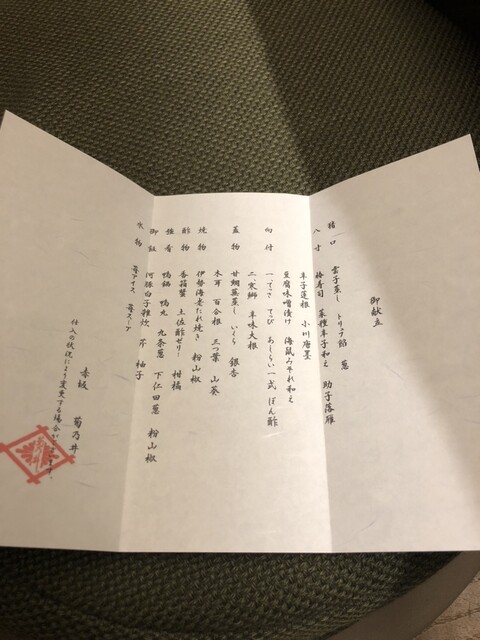 御献立
猪口 雲子蒸し トリフ餡 葱
八寸 柃寿司 菜種辛子和え 助子落雁
辛子蓮根 小川唐墨
豆腐味噌漬け 海鼠みぞれ和え
向付 一、てっさ てっぴ あしらい一式 ぽん酢
二、寒鰤 辛味大根
蓋物 甘鯛蕪蒸し いくら 銀杏
木耳 百合根 三つ葉 山葵
焼物 伊勢海老たれ焼き 粉山椒
酢物 香箱蟹 土佐酢ゼリー 柑橘
強肴 鴨鍋 鴨丸 九条葱 下仁田葱 粉山椒
御飯 河豚白子雑炊 芹 柚子
水物 苺アイス 苺スープ
赤坂 菊乃井
仕入の状況により変更する場合がございます。